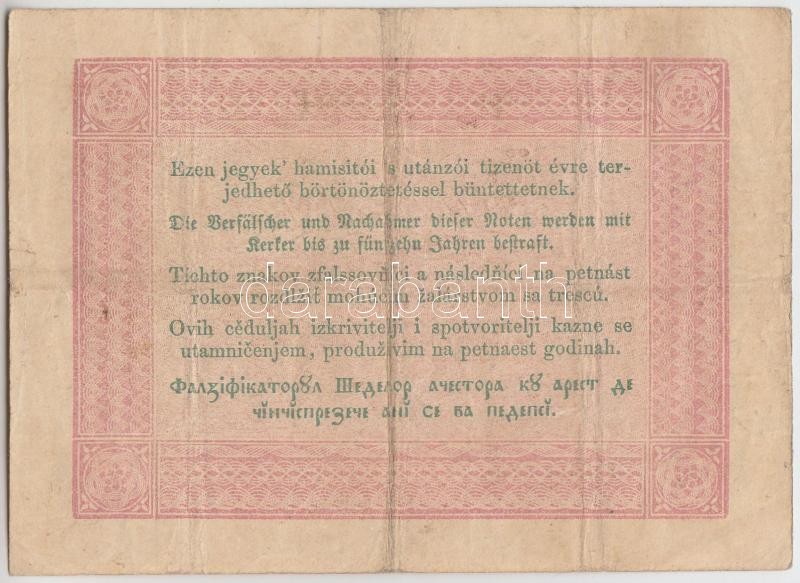 Ezen jegyek’ hamisitói ’s utánzói tizenöt évre ter-
jedhető börtönöztetéssel büntettetnek.
Die Verfälscher und Nachahmer dieser Noten werden mit
Kerker bis zu fünfzehn Jahren bestraft.
Tichto znakov zfalssovňíci a následňíci na petnást
rokov rozdlžiť mohúcim žalárstvom sa trescú.
darabanth
Ovih cěduljah izkrivitelji i spotvoritelji kazne se
utamničenjem, produživim na petnaest godinah.
Фалзіфікаторꙋл Шеделор ачестора кꙋ арест де
чінчіспрезече ані се ва педепсі.